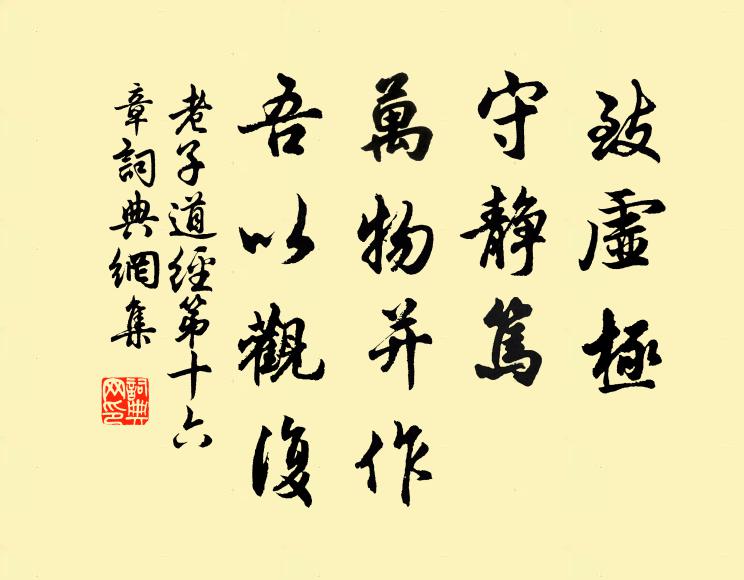 致虛極
守靜篤
萬物并作
吾以觀復
老子道經第十六
章詞典網集
詞典
网印